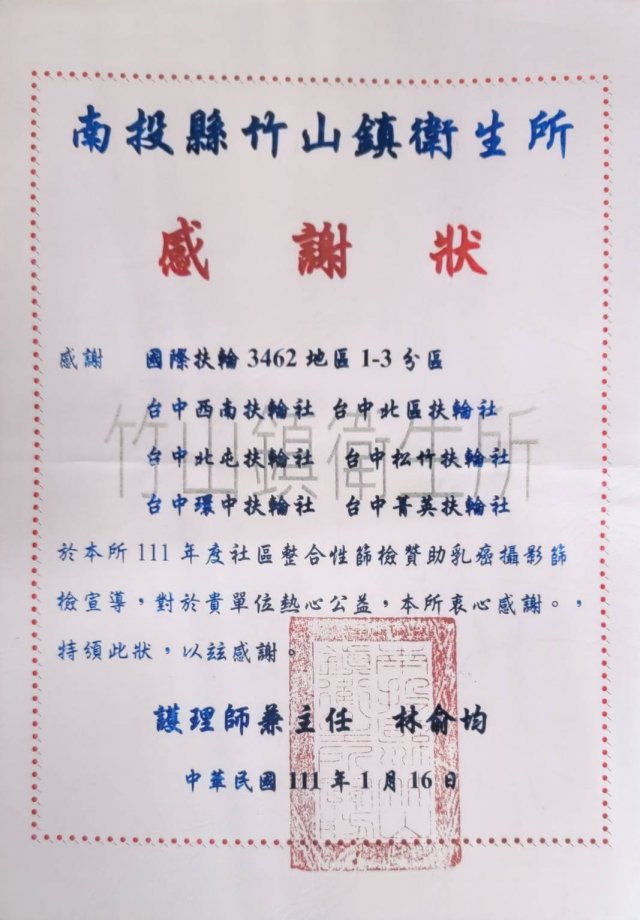 南投縣竹山鎮衛生所
感謝狀
感謝 國際扶輪3462地區1-3分區
台中西南扶輪社 台中北區扶輪社
台中北屯扶輪社 台中松竹扶輪社
台中環中扶輪社 台中菁英扶輪社
竹山鎮衛生所
於本所111年度社區整合性篩檢贊助乳癌攝影篩
檢宣導，對於貴單位熱心公益，本所衷心感謝。，
特頒此狀，以茲感謝。
護理師兼主任 林俞均
中華民國111年1月16日